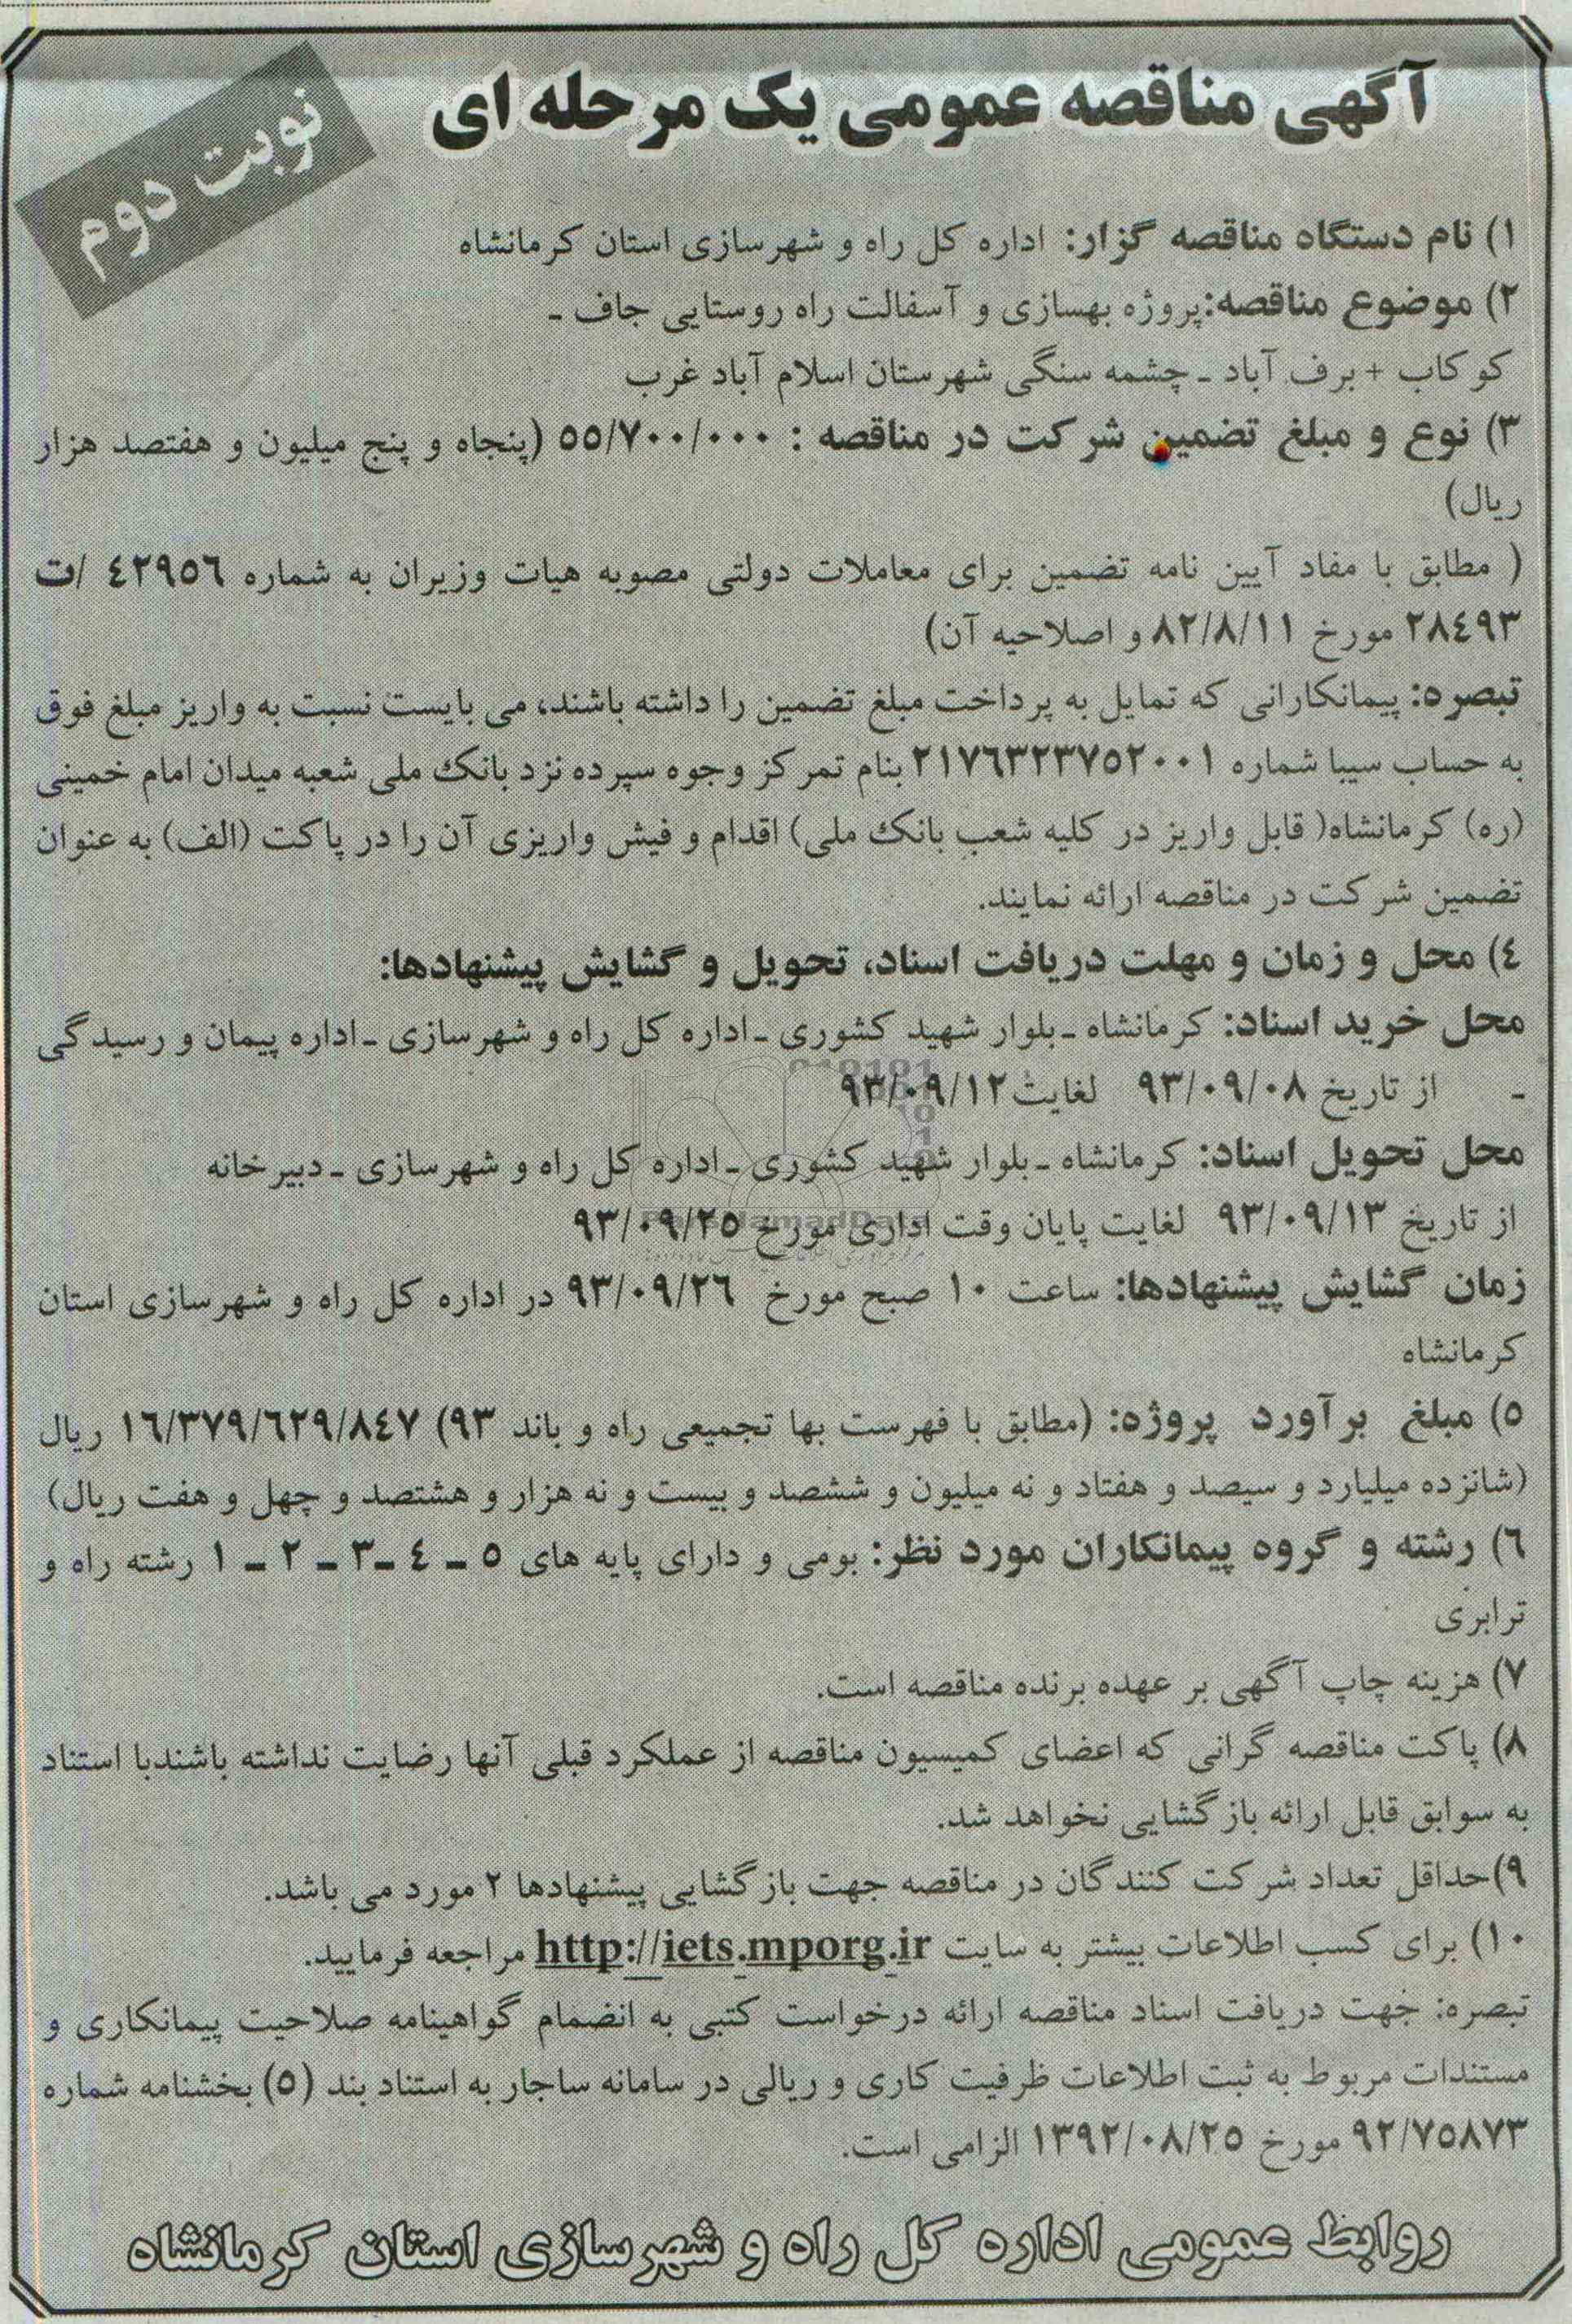 آگهی مناقصه عمومی یک مرحله ای
نوبت دوم
۱) نام دستگاه مناقصه گزار: اداره کل راه و شهرسازی استان کرمانشاه
۲) موضوع مناقصه:پروژه بهسازی و آسفالت راه روستایی جاف ـ
کوکاب + برف آباد ـ چشمه سنگی شهرستان اسلام آباد غرب
۳) نوع و مبلغ تضمین شرکت در مناقصه : ۵۵/۷۰۰/۰۰۰ (پنجاه و پنج میلیون و هفتصد هزار
ریال)
( مطابق با مفاد آیین نامه تضمین برای معاملات دولتی مصوبه هیات وزیران به شماره ۴۲۹۵۶ /ت
۲۸۴۹۳ مورخ ۸۲/۸/۱۱ و اصلاحیه آن)
تبصره: پیمانکارانی که تمایل به پرداخت مبلغ تضمین را داشته باشند، می بایست نسبت به واریز مبلغ فوق
به حساب سیبا شماره ۲۱۷۶۳۲۳۷۵۲۰۰۱ بنام تمرکز وجوه سپرده نزد بانک ملی شعبه میدان امام خمینی
(ره) کرمانشاه( قابل واریز در کلیه شعب بانک ملی) اقدام و فیش واریزی آن را در پاکت (الف) به عنوان
تضمین شرکت در مناقصه ارائه نمایند.
۴) محل و زمان و مهلت دریافت اسناد، تحویل و گشایش پیشنهادها:
محل خرید اسناد: کرمانشاه ـ بلوار شهید کشوری ـ اداره کل راه و شهرسازی ـ اداره پیمان و رسیدگی
ـ از تاریخ ۹۳/۰۹/۰۸ لغایت ۹۳/۰۹/۱۲
محل تحویل اسناد: کرمانشاه ـ بلوار شهید کشوری ـ اداره کل راه و شهرسازی ـ دبیرخانه
از تاریخ ۹۳/۰۹/۱۳ لغایت پایان وقت اداری مورخ ۹۳/۰۹/۲۵
زمان گشایش پیشنهادها: ساعت ۱۰ صبح مورخ ۹۳/۰۹/۲۶ در اداره کل راه و شهرسازی استان
کرمانشاه
۵) مبلغ برآورد پروژه: (مطابق با فهرست بها تجمیعی راه و باند ۹۳) ۱۶/۳۷۹/۶۲۹/۸۴۷ ریال
(شانزده میلیارد و سیصد و هفتاد و نه میلیون و ششصد و بیست و نه هزار و هشتصد و چهل و هفت ریال)
۶) رشته و گروه پیمانکاران مورد نظر: بومی و دارای پایه های ۵ ـ ۴ ـ۳ ـ ۲ ـ ۱ رشته راه و
ترابری
۷) هزینه چاپ آگهی بر عهده برنده مناقصه است.
۸) پاکت مناقصه گرانی که اعضای کمیسیون مناقصه از عملکرد قبلی آنها رضایت نداشته باشندبا استناد
به سوابق قابل ارائه بازگشایی نخواهد شد.
۹)حداقل تعداد شرکت کنندگان در مناقصه جهت بازگشایی پیشنهادها ۲ مورد می باشد.
۱۰) برای کسب اطلاعات بیشتر به سایت http://iets.mporg.ir مراجعه فرمایید.
تبصره: جهت دریافت اسناد مناقصه ارائه درخواست کتبی به انضمام گواهینامه صلاحیت پیمانکاری و
مستندات مربوط به ثبت اطلاعات ظرفیت کاری و ریالی در سامانه ساجار به استناد بند (۵) بخشنامه شماره
۹۲/۷۵۸۷۳ مورخ ۱۳۹۲/۰۸/۲۵ الزامی است.
روابط عمومی اداره کل راه و شهرسازی استان کرمانشاه